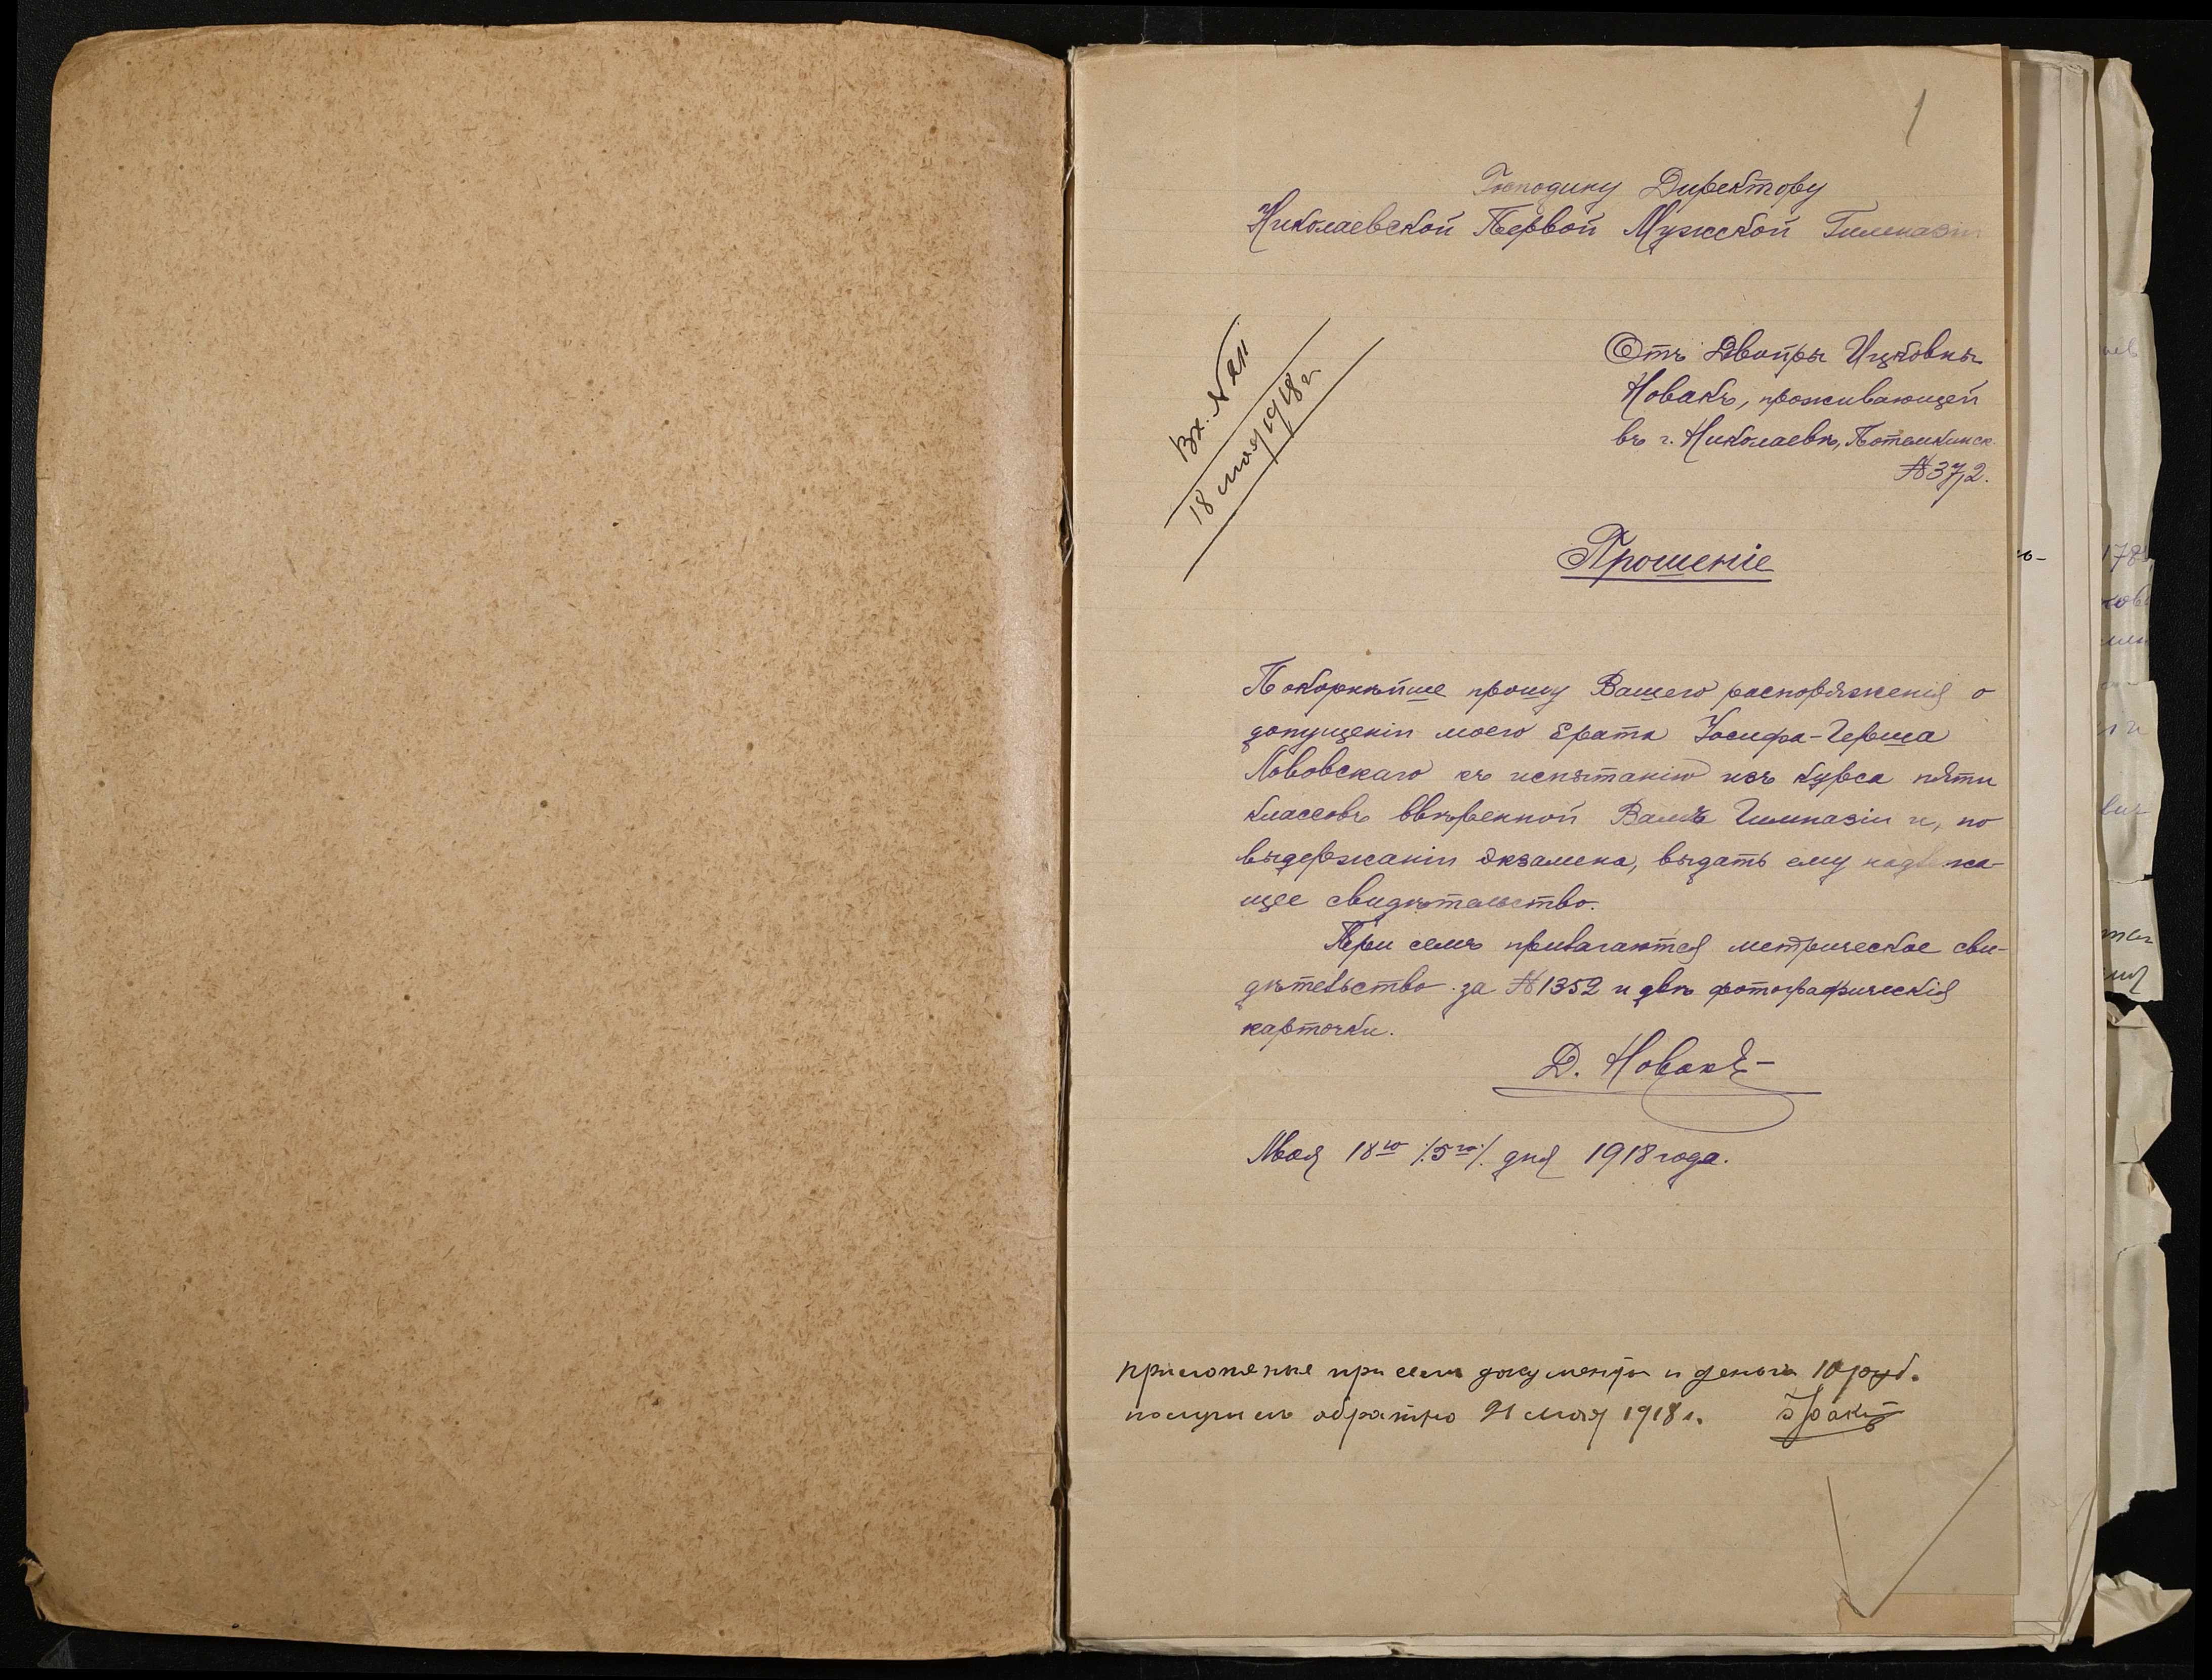 1
Господину Директору
Николаевской Первой Мужской Гимназіи
Вх. № 211
18 мая 1918 г.
Отъ Двойры Ицковны
Новакъ, проживающей
въ г. Николаевѣ, Потемкинск.
№ 37,2.
Прошеніе
Покорнѣйше прошу Вашего распоряженія о
допущеніи моего брата Іосифа-Герша
Львовскаго къ испытанію изъ курса пяти
классовъ ввѣренной Вамъ Гимназіи и, по
выдержаніи экзамена, выдать ему надлежа-
щее свидѣтельство.
При семъ прилагаются метрическое сви-
дѣтельство за № 1352 и двѣ фотографическія
карточки.
Д. Новакъ
Мая 18го /:5го:/ дня 1918 года.
приложенные при семъ документы и деньги 10 руб.
получилъ обратно 21 мая 1918 г.